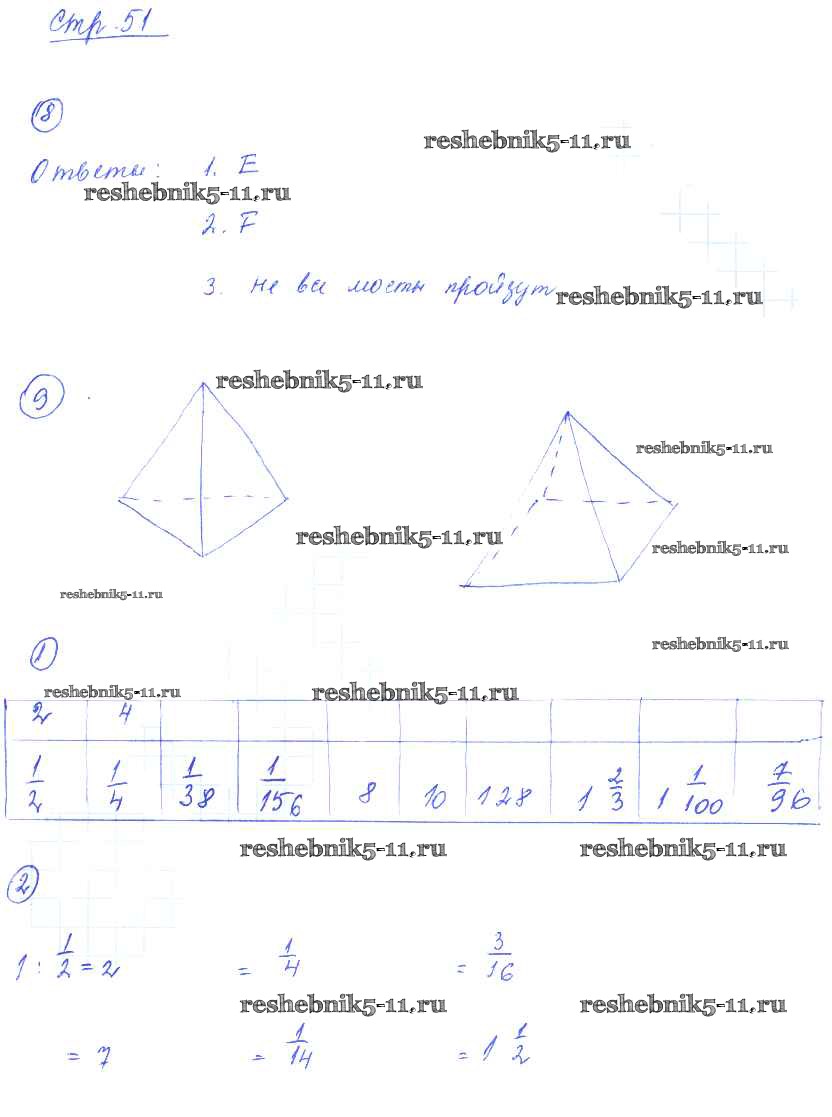 Стр. 51
8
reshebnik5-11.ru
Ответы: 1. E
reshebnik5-11.ru
2. F
3. не все мосты пройдут
reshebnik5-11.ru
9
reshebnik5-11.ru
reshebnik5-11.ru
reshebnik5-11.ru
reshebnik5-11.ru
reshebnik5-11.ru
1
reshebnik5-11.ru
reshebnik5-11.ru reshebnik5-11.ru
2 4
1/2 1/4 1/38 1/156 8 10 128 1 2/3 1 1/100 7/96
reshebnik5-11.ru reshebnik5-11.ru
2
1 : 1/2 = 2 = 1/4 = 3/16
reshebnik5-11.ru reshebnik5-11.ru
= 7 = 1/14 = 1 1/2